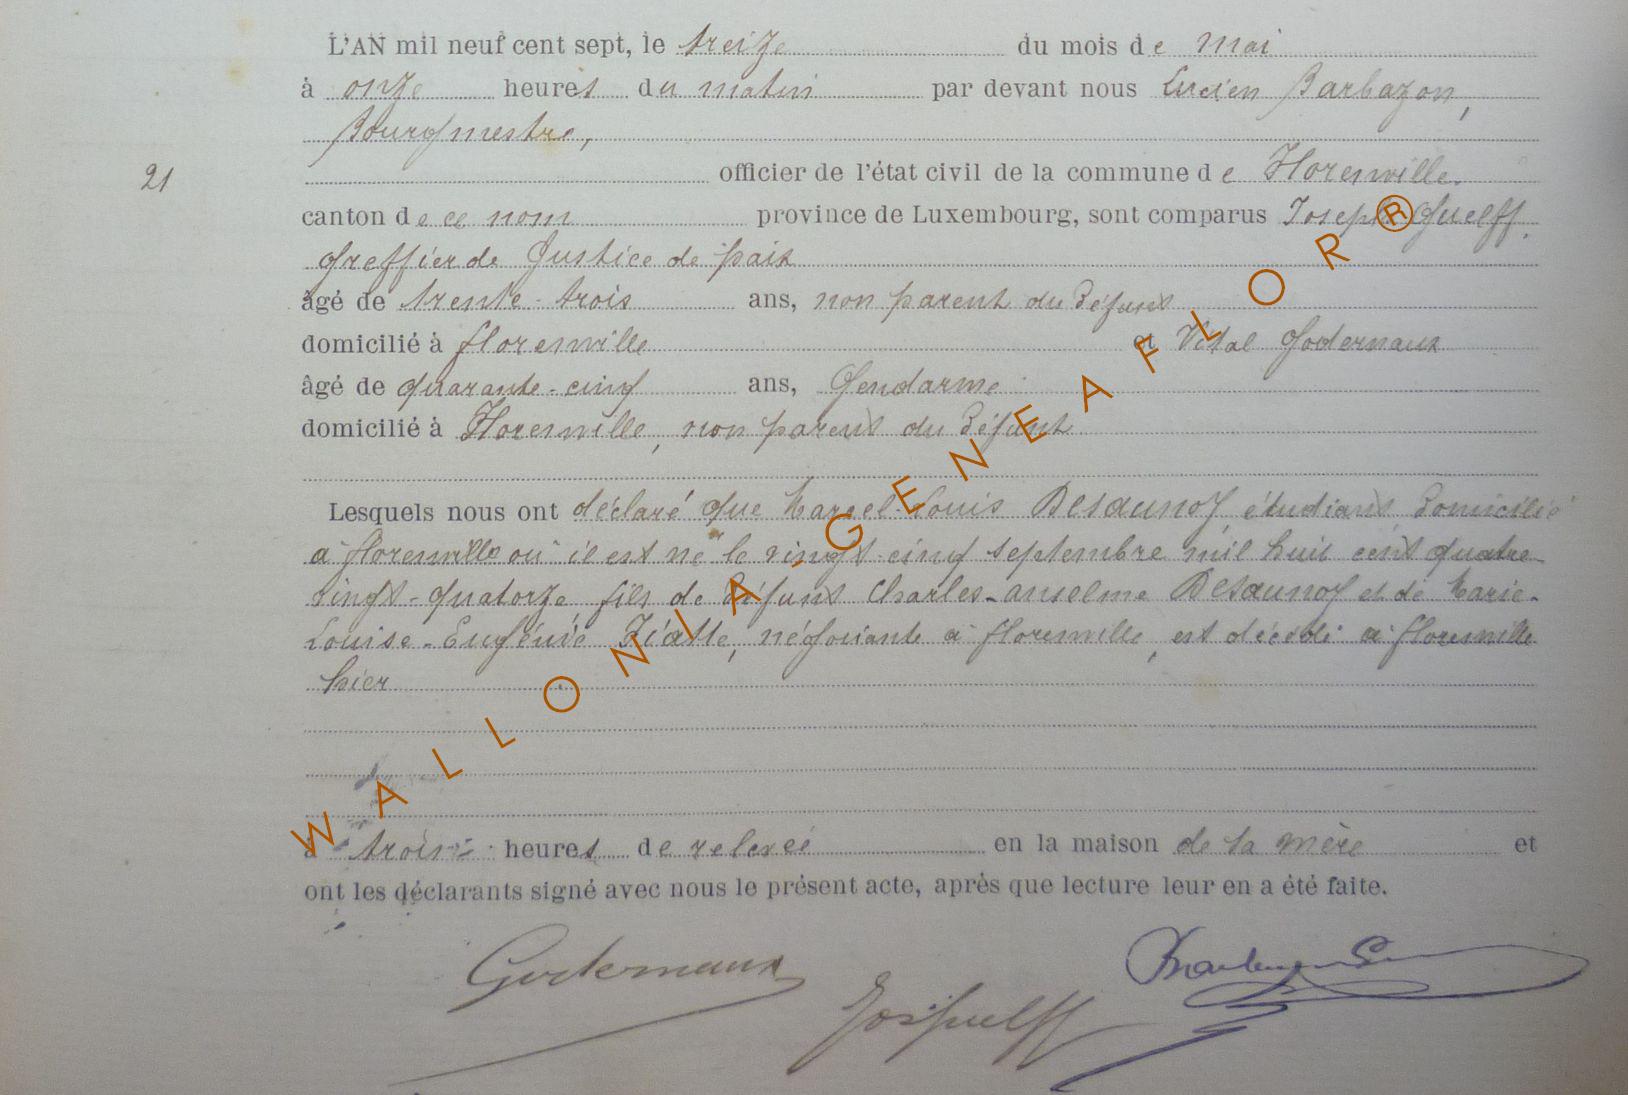 L'AN mil neuf cent sept, le treize du mois de mai
à onze heures du matin par devant nous Lucien Barbazon,
Bourgmestre,
21 officier de l'état civil de la commune de Florenville.
canton de ce nom province de Luxembourg, sont comparus Joseph Guelff,
Greffier de Justice de paix
âgé de trente-trois ans, non parent du défunt
domicilié à florenville et Vital Godernaux
âgé de quarante-cinq ans, Gendarme
domicilié à Florenville, non parent du défunt
Lesquels nous ont déclaré que Marcel-Louis Desaunoy, étudiant domicilié
à florenville où il est né le vingt-cinq septembre mil huit cent quatre
vingt-quatorze fils de défunt Charles-anselme Desaunoy et de Marie-
Louise-Eugénie négociante à florenville, est décédé à florenville
hier
à trois heures de relevée en la maison de la mère et
ont les déclarants signé avec nous le présent acte, après que lecture leur en a été faite.
Godernaux
Jos Guelff
WALLONIA-GENEAFLOR®